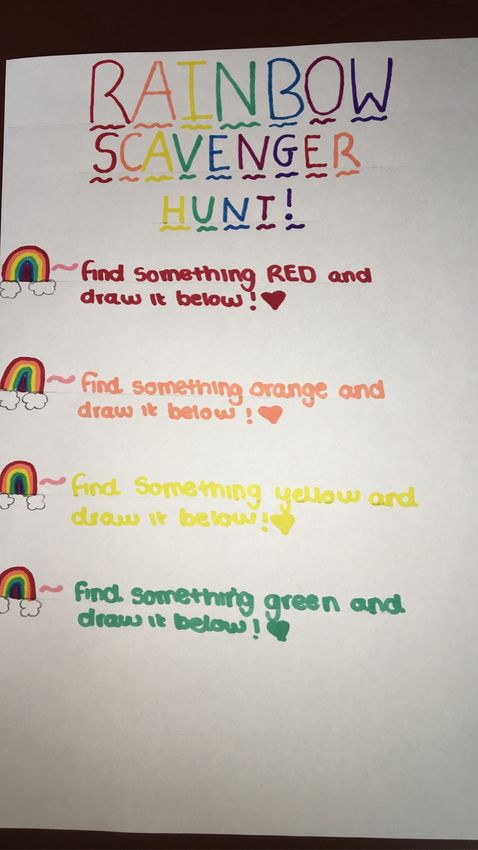 RAINBOW
SCAVENGER
HUNT!
find something RED and
draw it below!
find something orange and
draw it below!
find something yellow and
draw it below!
find something green and
draw it below!